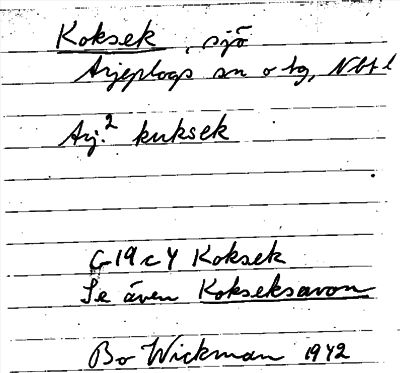 Koksek, sjö
Arjeplogs sn o tg, Nbt l
Arj.² kuksek
G 19 c Y Koksek
Se även Kokseksavon
Bo Wickman 1942